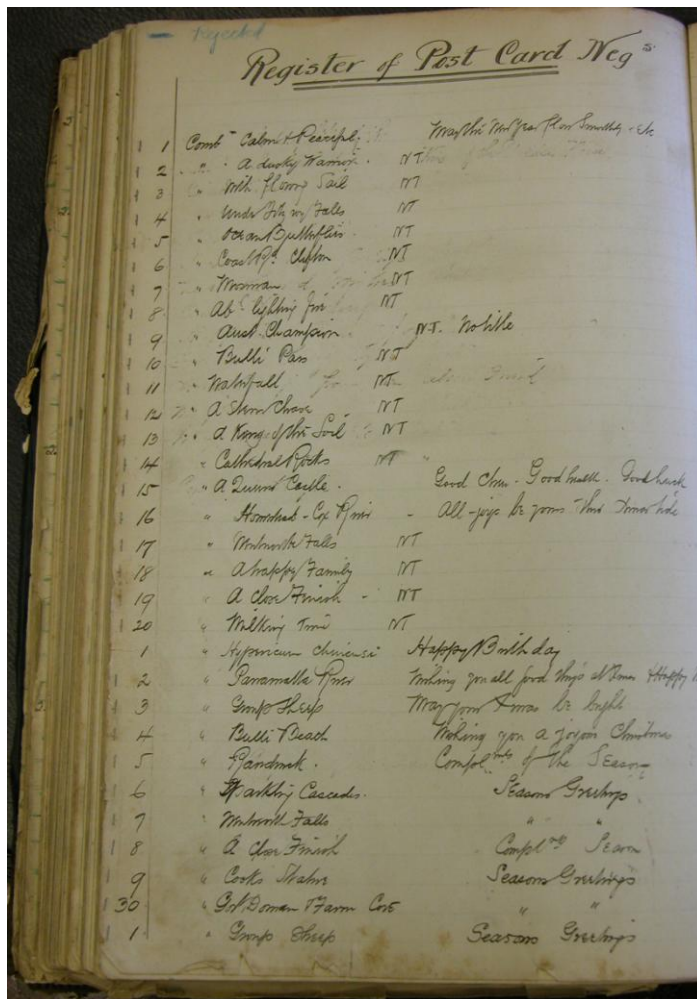 rejected
Register of Post Card Negs
1 1 Comb Calm & Peaceful May this New Year flow Smoothly - Etc
2 " A dusky Warrior. NT
3 " With flowing Sail NT
4 " Under Fitzroy Falls NT
5 " Ocean Butterflies. NT
6 " Coast Rd. Clifton NT
7 " NT
8 " Abl. lighting fire NT
9 " Aust. Champion N.T. No title
10 " Bulli Pass NT
11 " Waterfall NT
12 " A Stern Chase NT
13 " A King of the Soil NT
14 " Cathedral Rocks NT "
15 " A Queens Castle. Good Cheer. Good health. Good luck
16 " Homestead - Cox River - All joys be yours this Xmas tide
17 " Wentworth Falls NT
18 " A happy Family NT
19 " A close Finish - NT
20 " Milking Time NT
1 " Hypericum chinensi Happy Birthday
2 " Parramatta River Wishing you all good things at Xmas & Happy
3 " Group Sheep May your Xmas be bright
4 " Bulli Beach Wishing you a joyous Christmas
5 " Randwick. Complmts of the Season
6 " Sparkling Cascades. Seasons Greetings
7 " Wentworth Falls " "
8 " A close Finish Complmts Season
9 " Cooks Statue Seasons Greetings
30 " Gdn Domain & Farm Cove " "
1 " Group Sheep Seasons Greetings